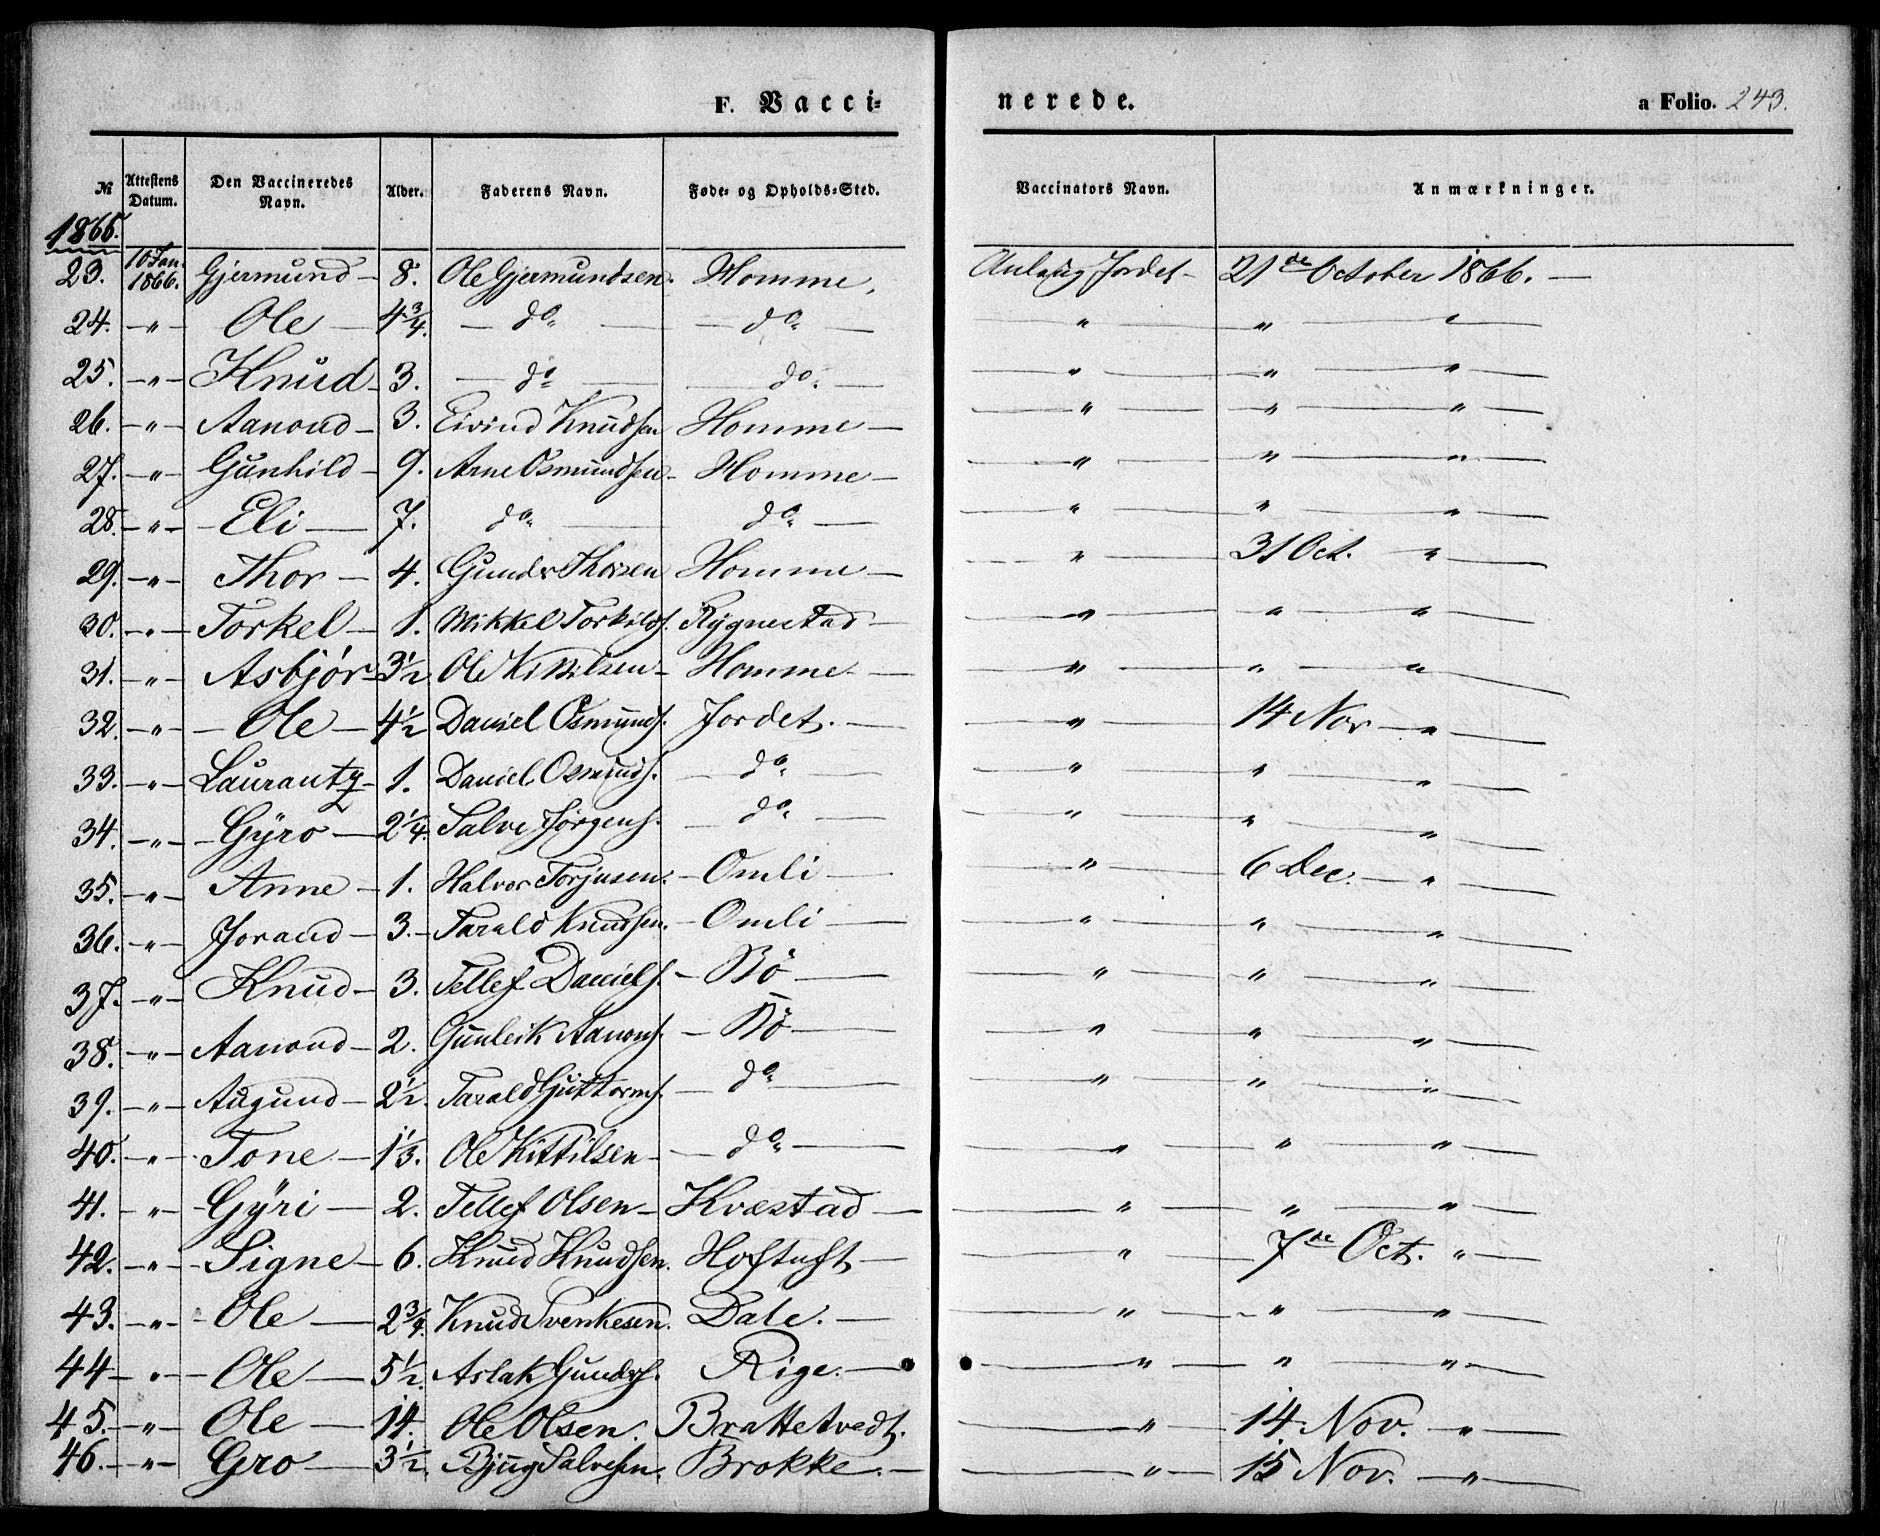 F. Vacci-
nerede.
a Folio. 243.
No | Attestens Datum. | Den Vaccineredes Navn. | Alder. | Faderens Navn. | Føde- og Opholds-Sted. | Vaccinators Navn. | Anmærkninger.
1865.
23. | 10 Jan. 1866. | Gjermund | 8. | Ole Gjermundsen. | Homme. | Jordet | 21de October 1866.
24. | " | Ole | 4 3/4. | do | do | " | " "
25. | " | Knud | 3. | do | do. | " | " "
26. | " | Aanond | 3. | Eivind Knudsen | Homme | " | " "
27. | " | Gunhild | 9. | Arne Osmundsen | Homme | " | " "
28. | " | Eli | 7. | do | do | " | " "
29. | " | Thor | 4. | Gunder Thorsen | Homme | " | 31 Oct. "
30. | " | Torkel | 1. | Mikkel Torkilds. | Rygnestad | " | " "
31. | " | Asbjør | 3 1/2 | Ole Kittilsen | Homme | " | " "
32. | " | Ole | 4 1/2 | Daniel Osmunds. | Jordet. | " | 14 Nov "
33. | " | Laurantz | 1. | Daniel Osmunds. | do | " | " "
34. | " | Gyro | 2 1/4. | Salve Jørgens. | do | " | " "
35. | " | Anne | 1. | Halvor Torjusen. | Omli | " | 6 Dec. "
36. | " | Jorand | 3. | Tarald Knudsen. | Omli | " | " "
37. | " | Knud | 3. | Tellef Daniels. | Bö | " | " "
38. | " | Aanond | 2. | Gunleik Aanons. | Bö | " | " "
39. | " | Augund | 2 1/2. | Tarald Guttorms. | do | " | " "
40. | " | Tone | 1 1/3. | Ole Kittilsen | do | " | " "
41. | " | Gyri | 2. | Tellef Olsen | Kvæstad | " | " "
42. | " | Signe | 6. | Knud Knudsen. | Hoftuft | " | 7de Oct. "
43. | " | Ole | 2 3/4. | Knud Svenkesen. | Dale. | " | " "
44 | " | Ole | 5 1/2. | Aslak Gunders. | Rige. | " | " "
45. | " | Ole | 14. | Ole Olsen. | Brattetvedt. | " | 14. Nov. "
46. | " | Gro | 3 1/2. | Bjug Salvesen. | Brokke. | " | 15 Nov. "